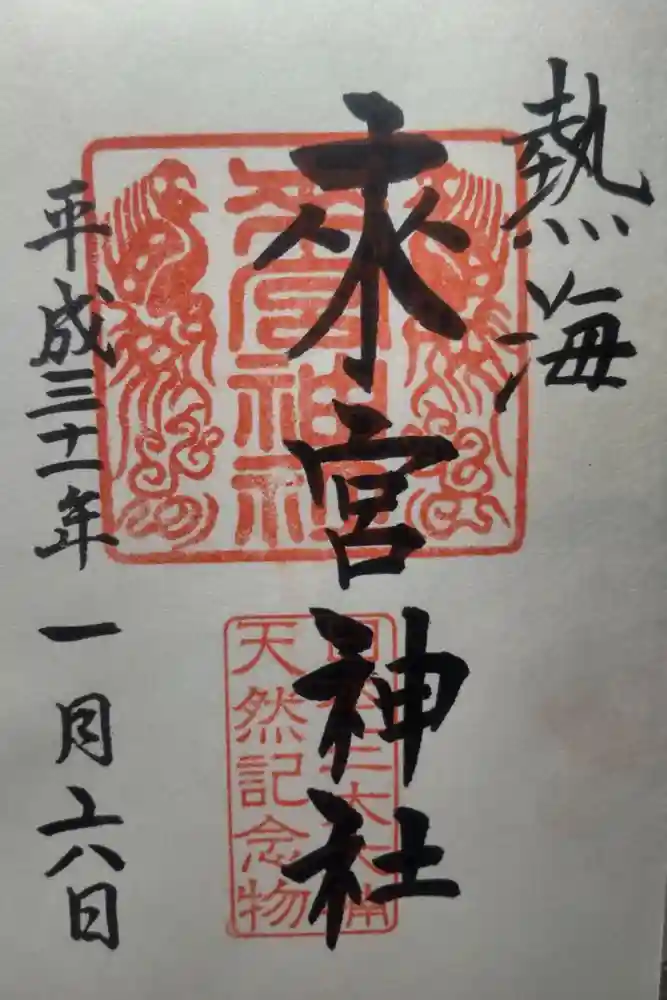 熱海
来宮神社
來宮神社
日本三大大楠
天然記念物
平成三十一年一月十六日